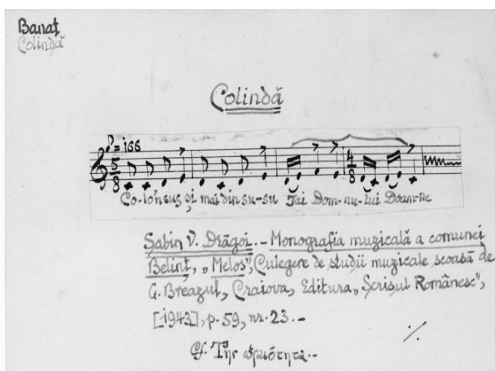 Banaț
Colindă
Colindă
♪ = 166
5/8 4/8
Co-lo'n sus și mai din su-su Tai Dom-nu-lui Doam-ne
Sabin V. Drăgoi. - Monografia muzicală a comunei
Belinț, „Melos", Culegere de studii muzicale scoasă de
G. Breazul, Craiova, Editura „Scrisul Românesc",
[1943], p. 59, nr. 23. -
cf.